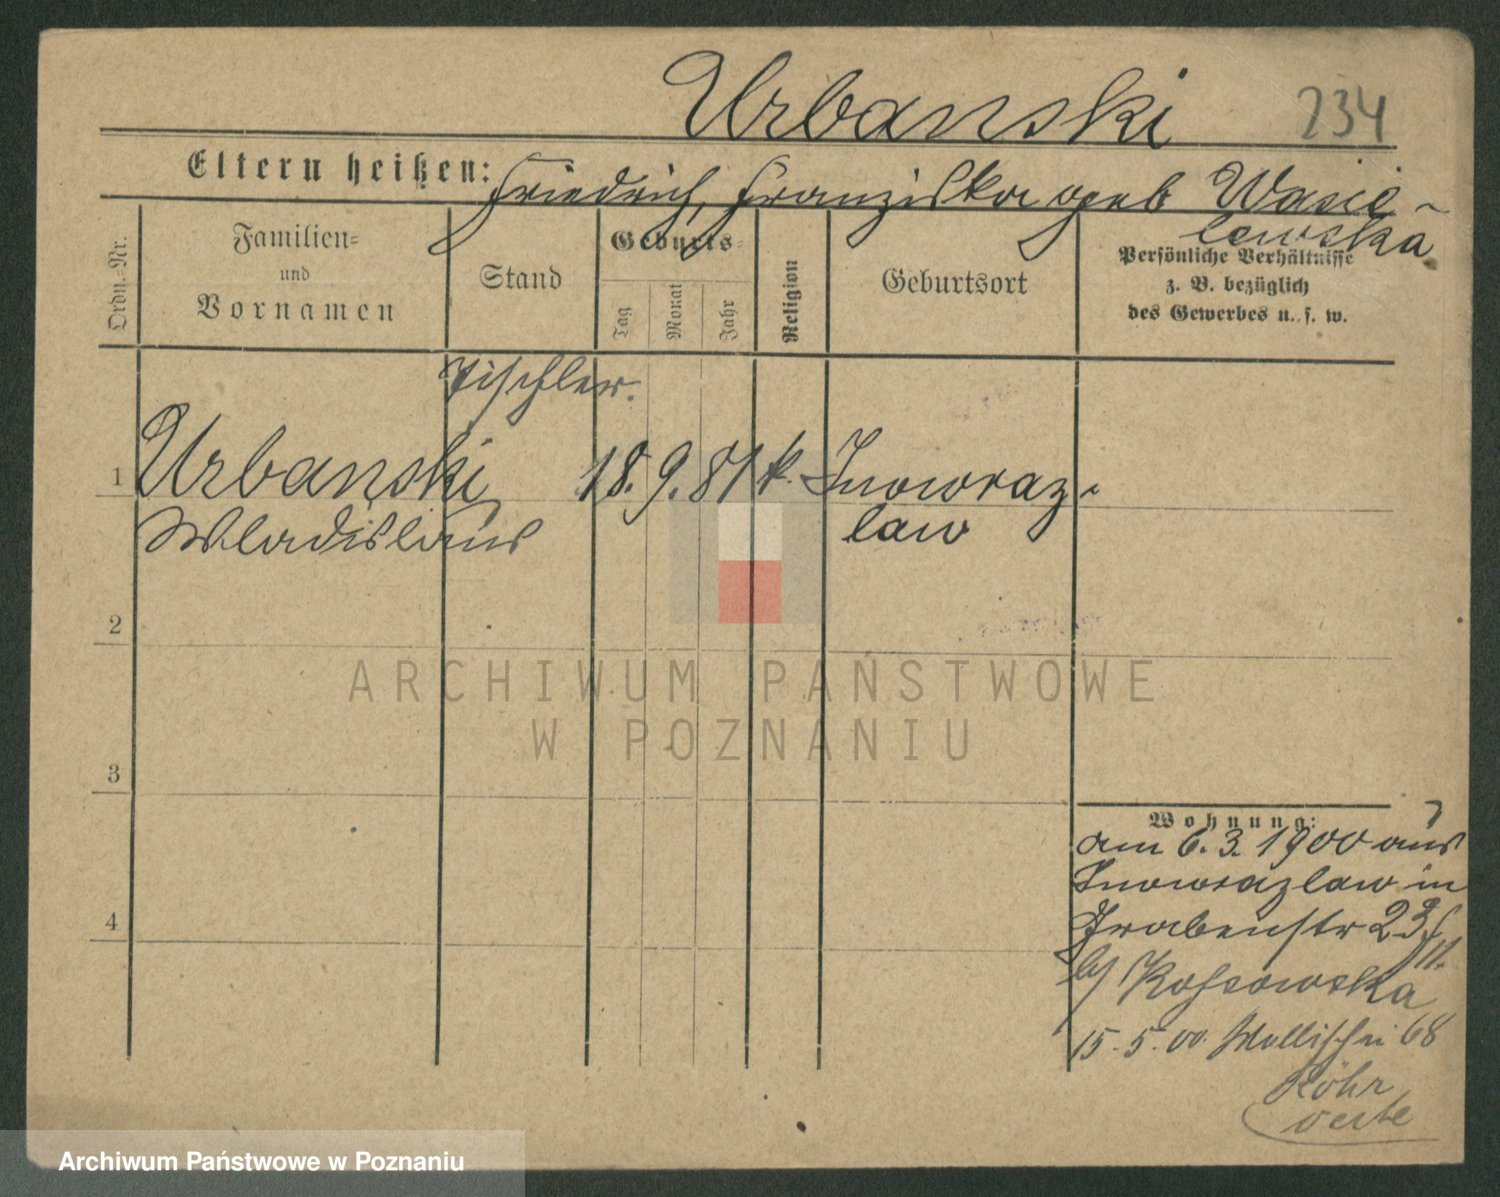 Urbanski 234
Eltern heißen: Friedrich, Franziska geb Wasie-
lewska
Ordn.-Nr.
Familien-
und
Vornamen
Stand
Geburts-
Tag
Monat
Jahr
Religion
Geburtsort
Persönliche Verhältnisse
z. B. bezüglich
des Gewerbes u. s. w.
Tischler.
1 Urbanski 18. 9. 81 k. Inowraz-
Wladislaus law
2
3
4
Wohnung:
am 6. 3. 1900 aus
Inowrazlaw in
Grabenstr 23
b/ Kossowska
15. 5. 00. Wallischei 68
Röhr
ARCHIWUM PAŃSTWOWE
W POZNANIU
Archiwum Państwowe w Poznaniu